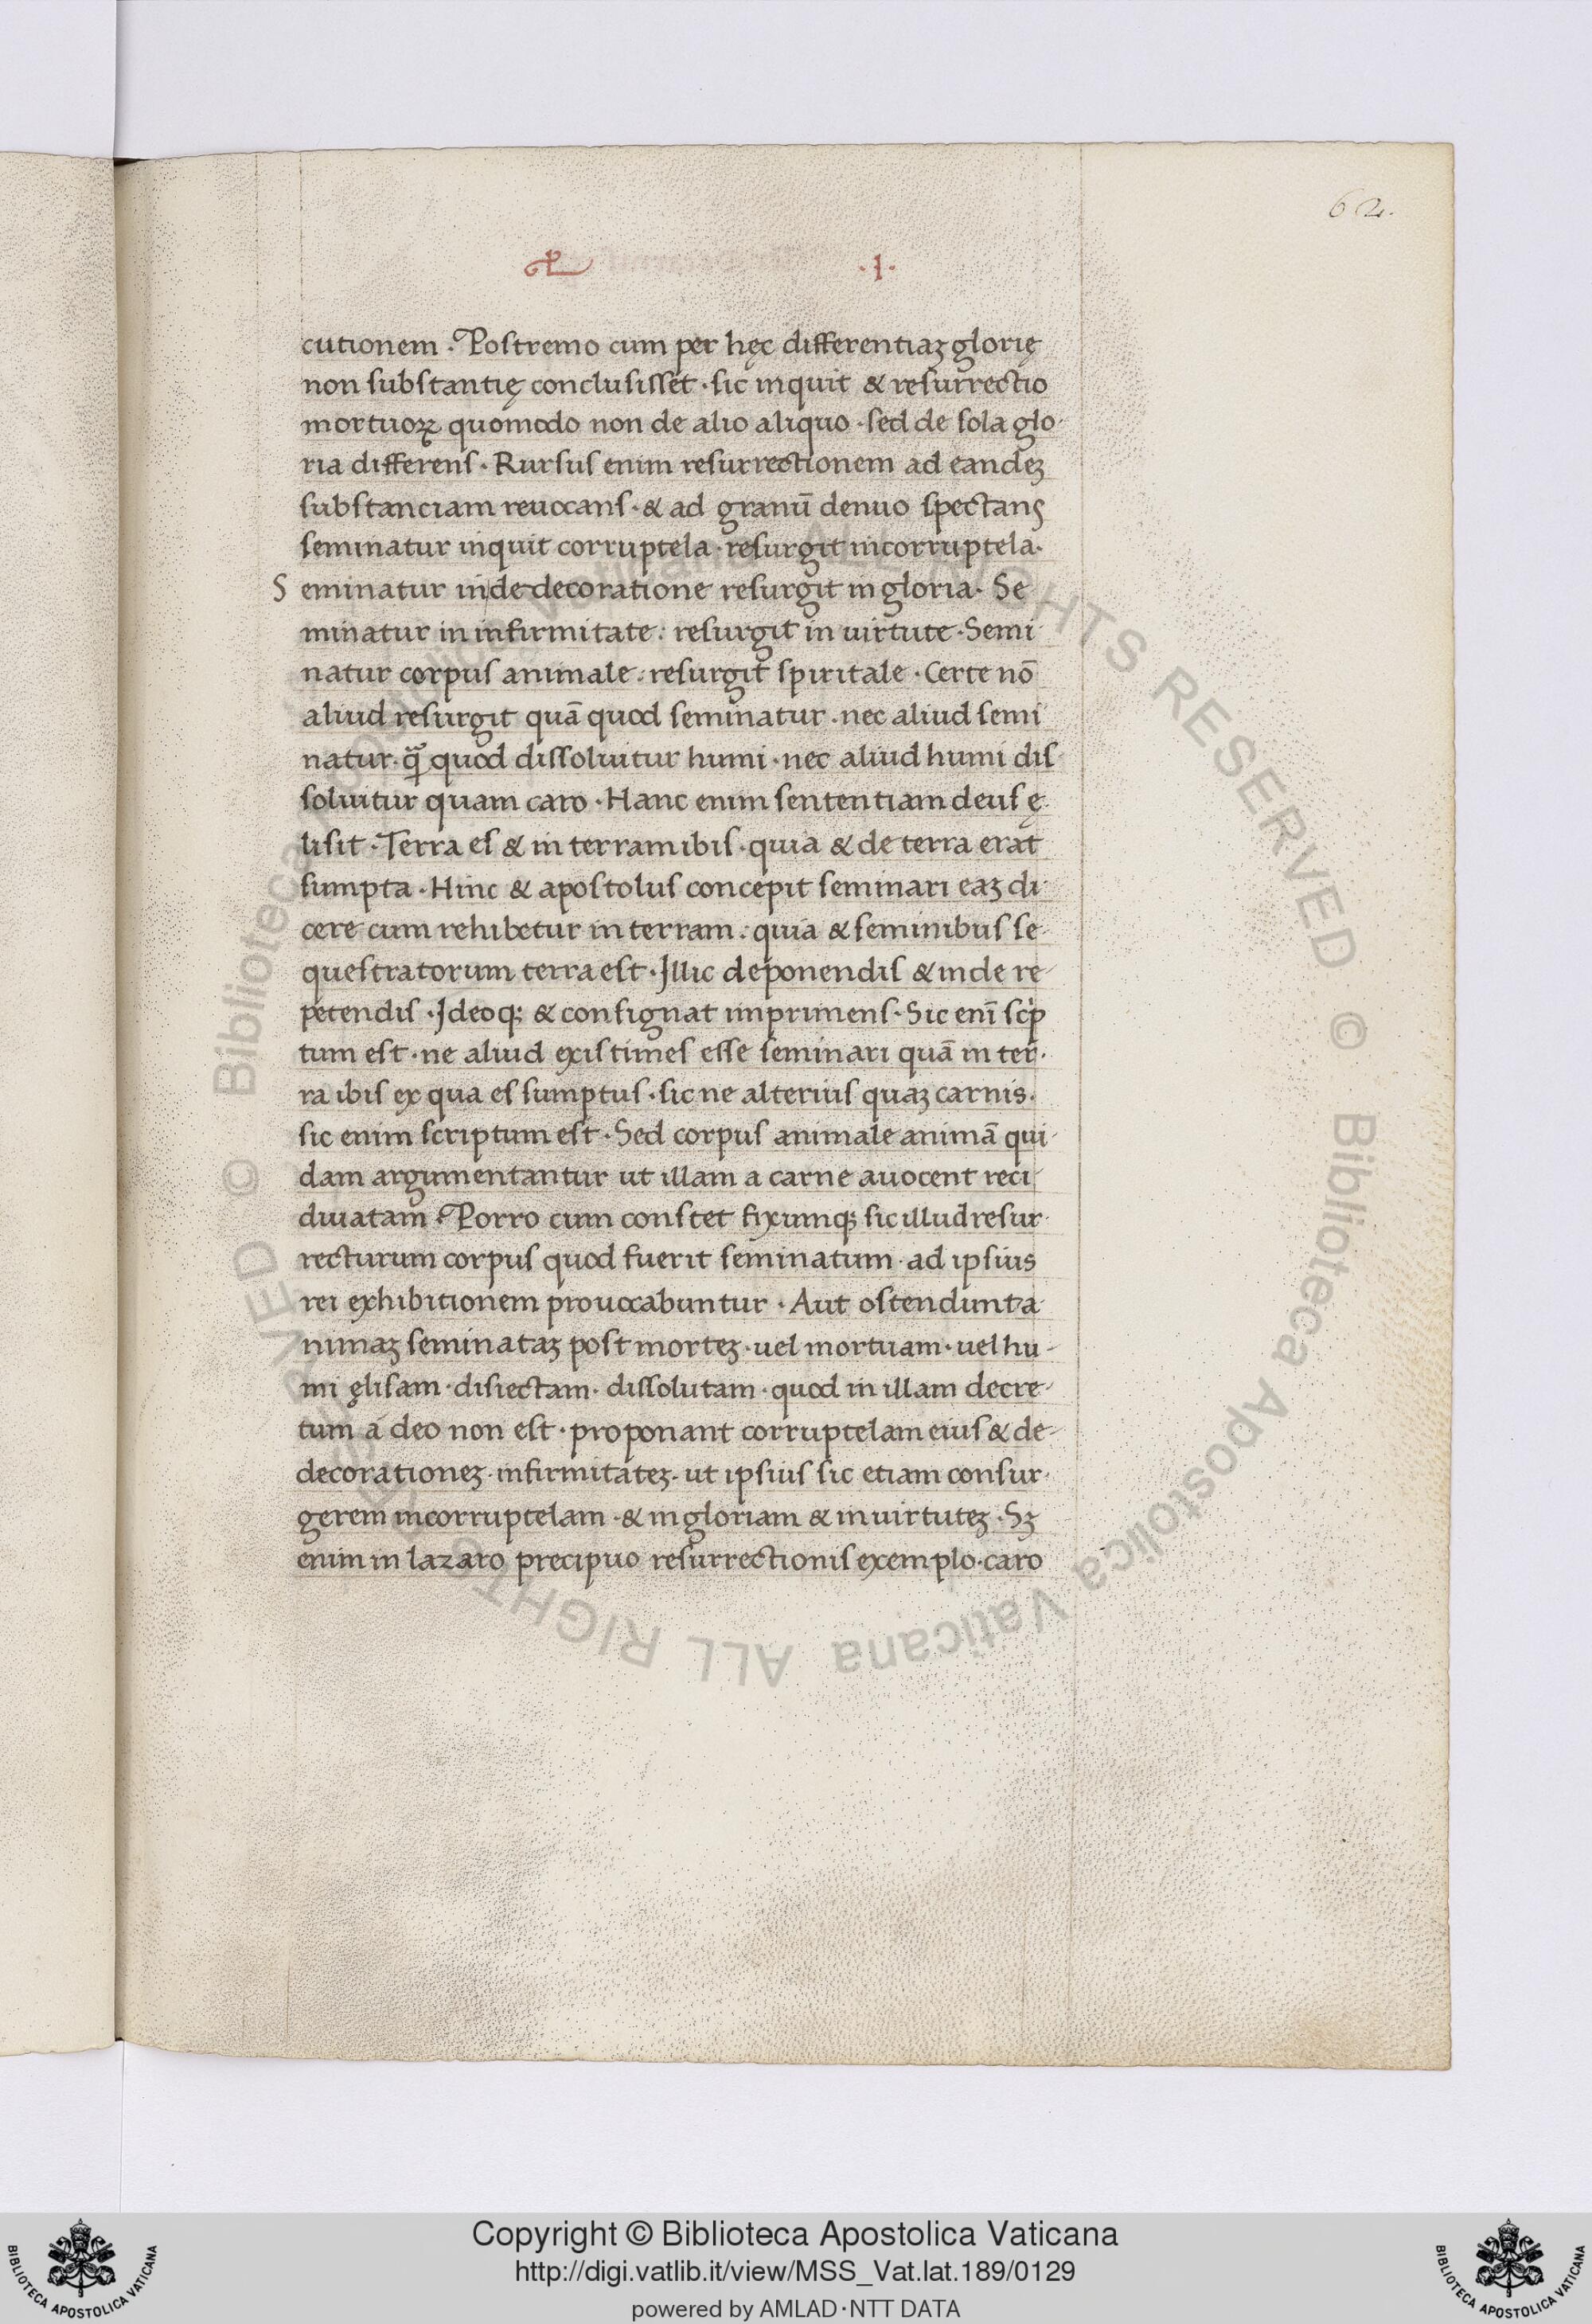 62.
·I·
cutionem · Postremo cum per hęc differentiaꝫ glorię
non substantię conclusisset · sic inquit & resurrectio
mortuoꝝ quomodo non de alio aliquo · sed de sola glo-
ria differens · Rursus enim resurrectionem ad eandeꝫ
substanciam reuocans · & ad granū denuo spectans
seminatur inquit corruptela · resurgit incorruptela ·
S eminatur in dedecoratione resurgit in gloria · Se
minatur in infirmitate : resurgit in uirtute · Semi
natur corpus animale : resurgit spiritale · Certe nō
aliud resurgit quā quod seminatur · nec aliud semi
natur · quod dissoluitur humi · nec aliud humi dis-
soluitur quam caro · Hanc enim sententiam deus ę-
lisit · Terra es & in terram ibis · quia & de terra erat
sumpta · Hinc & apostolus concepit seminari eaꝫ di-
cere cum rehibetur in terram : quia & seminibus se-
questratorum terra est · Illic deponendis & inde re-
petendis · Ideoqꝫ & consignat imprimens · Sic enī scͥp
tum est · ne aliud existimes esse seminari quā in ter-
ra ibis ex qua es sumptus · sic ne alterius quaꝫ carnis ·
sic enim scriptum est · Sed corpus animale animā qui-
dam argumentantur ut illam a carne auocent reci-
diuatam · Porro cum constet fixumqꝫ sic illud resur-
recturum corpus quod fuerit seminatum · ad ipsius
rei exhibitionem prouocabuntur · Aut ostendunt a-
nimaꝫ seminataꝫ post morteꝫ · uel mortuam · uel hu-
mi ęlisam · disiectam · dissolutam · quod in illam decre-
tum a deo non est · proponant corruptelam eius & de-
decorationeꝫ · infirmitateꝫ · ut ipsius sic etiam consur-
gerem incorruptelam · & in gloriam & in uirtuteꝫ · Sꝫ
enim in lazaro precipuo resurrectionis exemplo · caro
Copyright © Biblioteca Apostolica Vaticana
http://digi.vatlib.it/view/MSS_Vat.lat.189/0129
powered by AMLAD·NTT DATA
BIBLIOTECA APOSTOLICA VATICANA
BIBLIOTECA APOSTOLICA VATICANA
© Biblioteca Apostolica Vaticana ALL RIGHTS RESERVED © Biblioteca Apostolica Vaticana ALL RIGHTS RESERVED